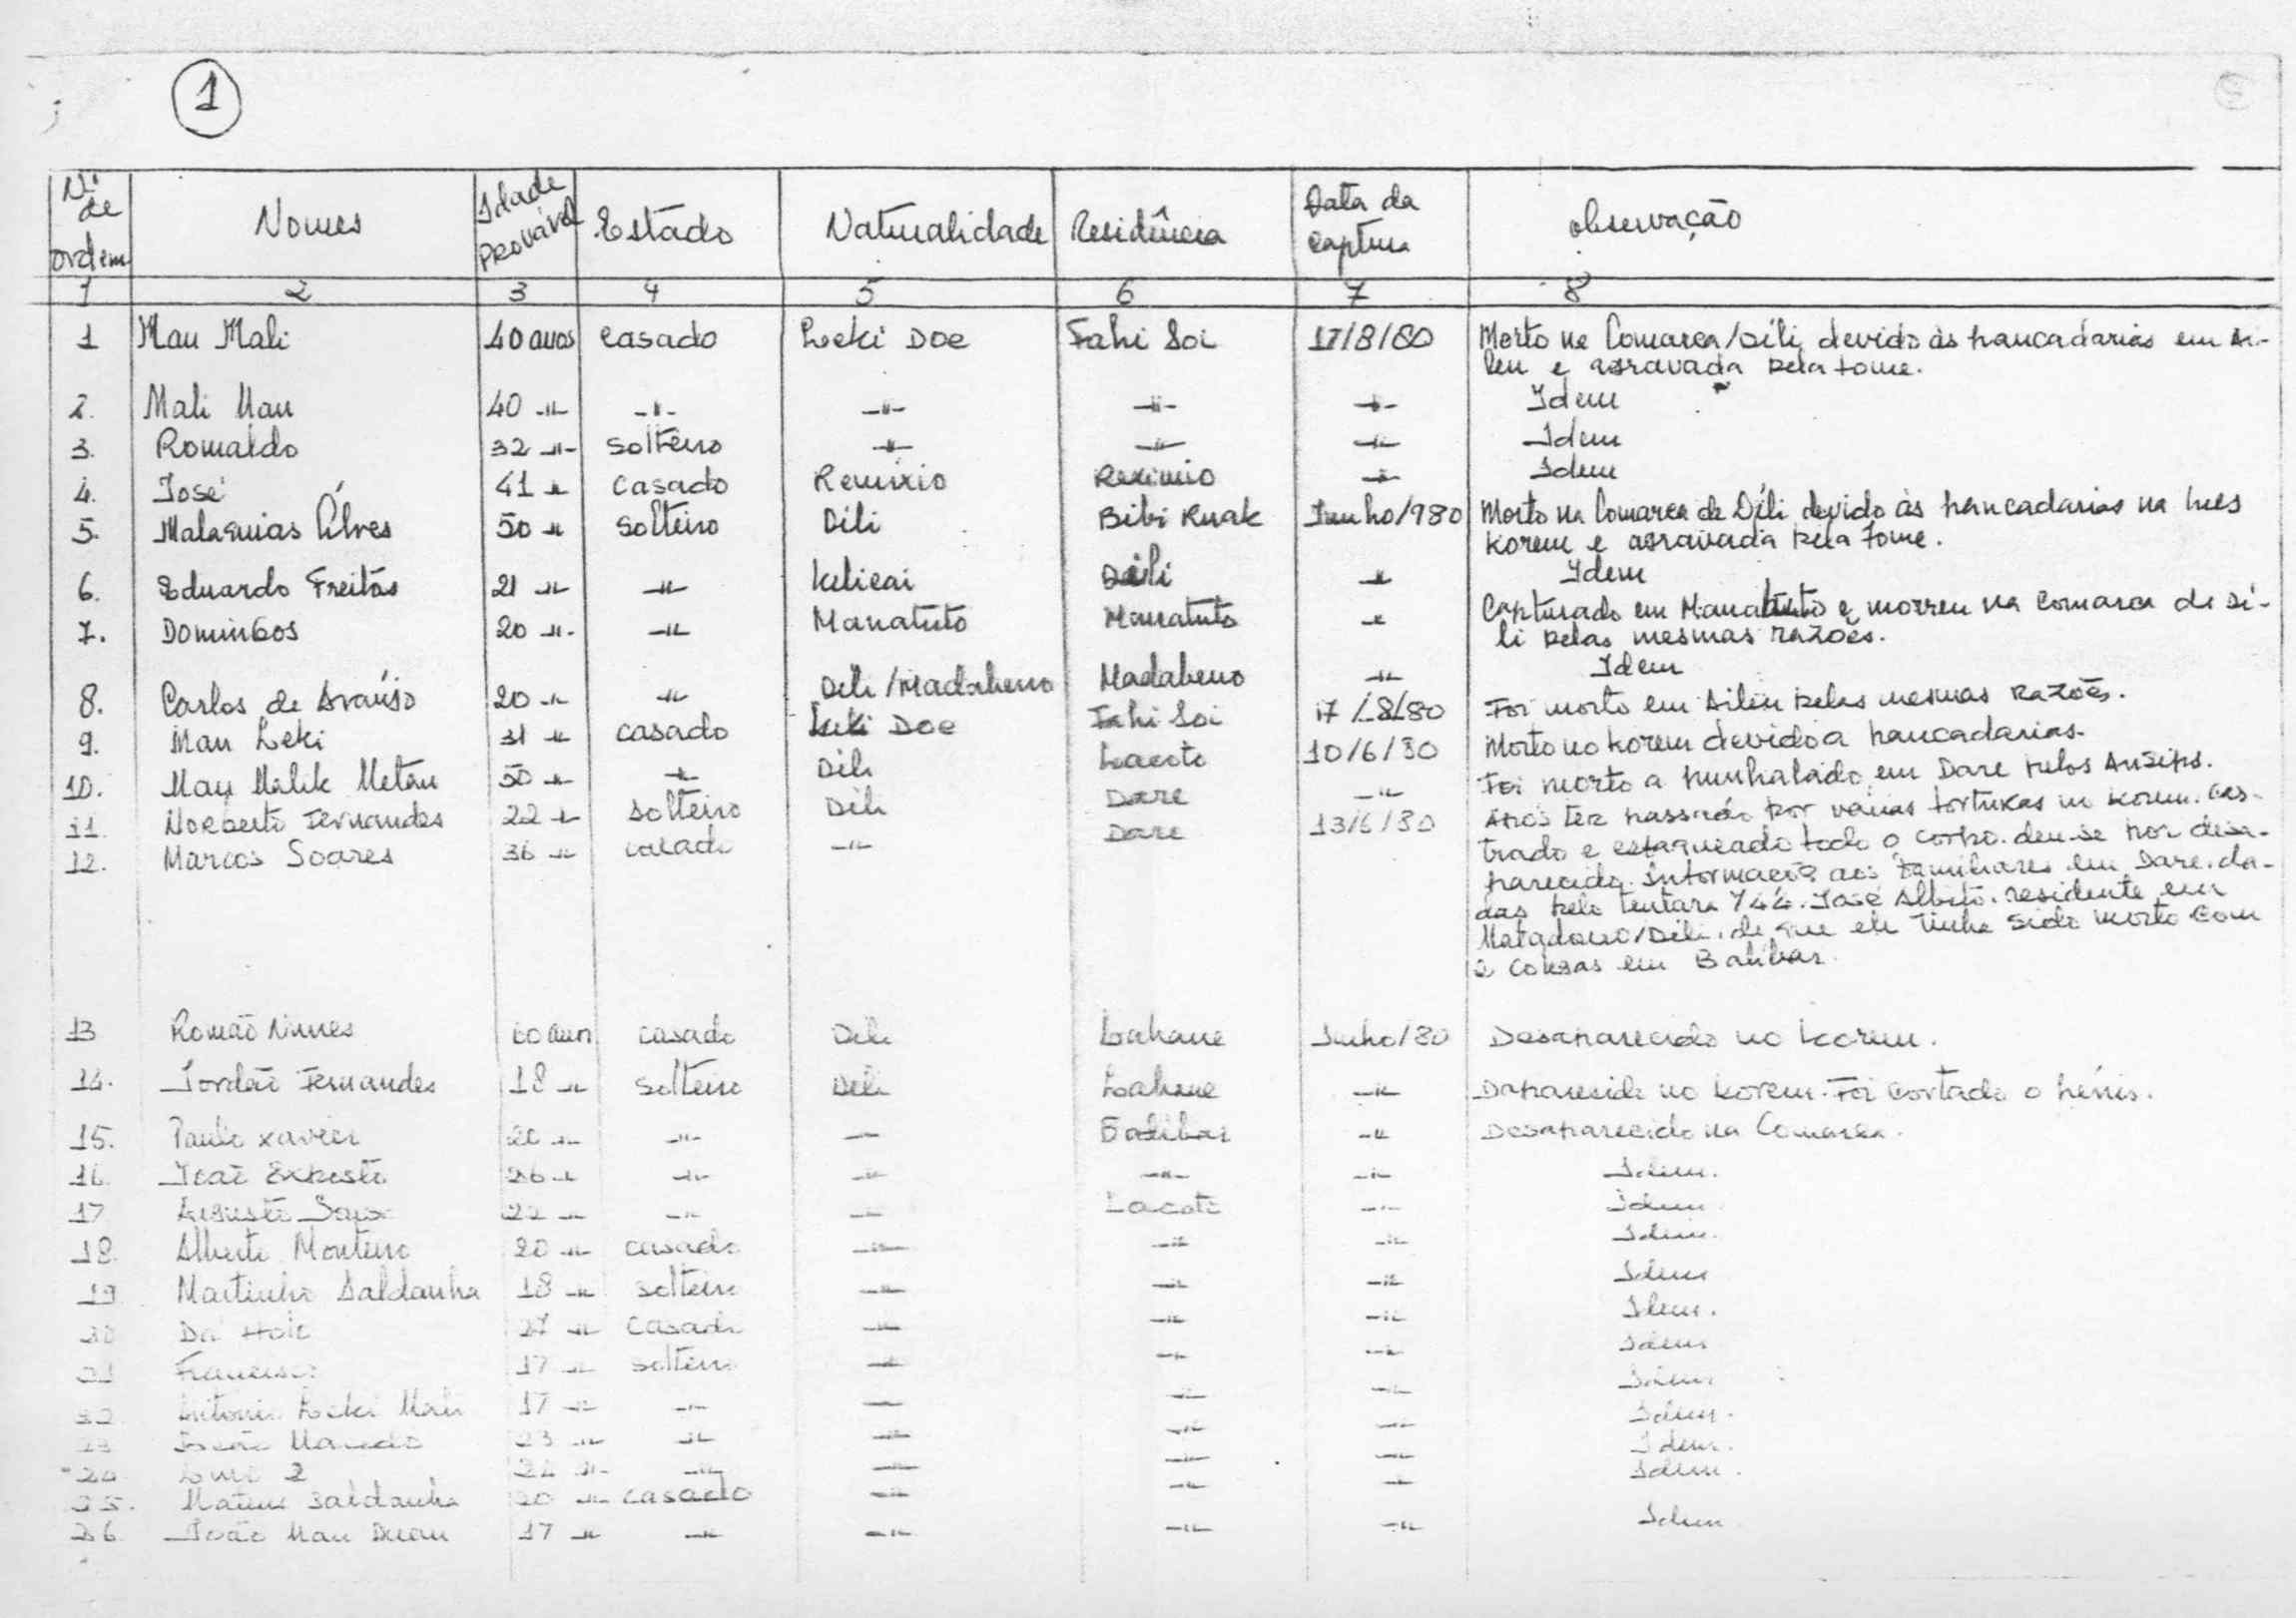 1
Nº de ordem Nomes Idade Provável Estado Naturalidade Residência Data da captura observação
1 2 3 4 5 6 7 8
1 Mau Mali 40 anos casado Leki Doe Fahi Soi 17/8/80 Morto na Comarca/Díli devido às pancadarias em Ai-
leu e agravada pela fome.
2. Mali Mau 40 -"- -"- -"- -"- -"- Idem
3. Romaldo 32 -"- solteiro -"- -"- -"- Idem
4. José 41 -"- casado Remixio Reximio -"- Idem
5. Malaquias Álves 50 -"- solteiro Dili Bibi Kuak Junho/980 Morto na Comarca de Díli devido às pancadarias na
Korem e agravada pela fome.
6. Eduardo Freitas 21 -"- -"- Kelicai Dili -"- Idem
7. Domingos 20 -"- -"- Manatuto Manatuto -"- Capturado em Manatuto e morreu na Comarca de Dí-
li pelas mesmas razões.
8. Carlos de Araújo 20 -"- -"- Dili/Madabeno Madabeno -"- Idem
9. Mau Leki 31 -"- casado Leki Doe Fahi Soi 17/8/80 Foi morto em Aileu pelas mesmas razões.
10. Mau Malik Metan 50 -"- -"- Dili Lacoto 10/6/80 Morto no Korem devido a pancadarias.
11. Norberto Fernandes 22 -"- solteiro Dili Dare -"- Foi morto a punhalado em Dare pelos
12. Marcos Soares 36 -"- casado -"- Dare 13/6/80 Após ter passado por várias torturas no Korem. Cas-
trado e estaqueado todo o corpo. deu-se por desa-
parecido. Informação aos familiares em Dare. da-
das pelo tentara 744. José Albito. residente em
Matadouro/Dili. de que ele tinha sido morto com
2 em Balibar.
13 Romão Nunes 60 anos casado Dili Lahane Junho/80 Desaparecido no Korem.
14. Jordão Fernandes 18 -"- solteiro Dili Lahane -"- no Korem. Foi cortado o pénis.
15. Paulo Xavier 20 -"- -"- -"- Balibar -"- Desaparecido na Comarca.
16. João Exposto 26 -"- -"- -"- -"- -"- Idem.
17 Augusto 22 -"- -"- -"- Lacoto -"- Idem
18. Alberto Monteiro 20 -"- casado -"- -"- -"- Idem.
19 Martinho Saldanha 18 -"- solteiro -"- -"- -"- Idem
20 27 -"- casado -"- -"- -"- Idem.
21 Francisco 17 -"- solteiro -"- -"- -"- Idem
22 Antonio Leki Mali 17 -"- -"- -"- -"- -"- Idem
23 23 -"- -"- -"- -"- -"- Idem.
24 -"- -"- -"- -"- Idem.
25. Mateus Saldanha 20 -"- casado -"- -"- -"- Idem.
26 João Mau 17 -"- -"- -"- -"- -"- Idem